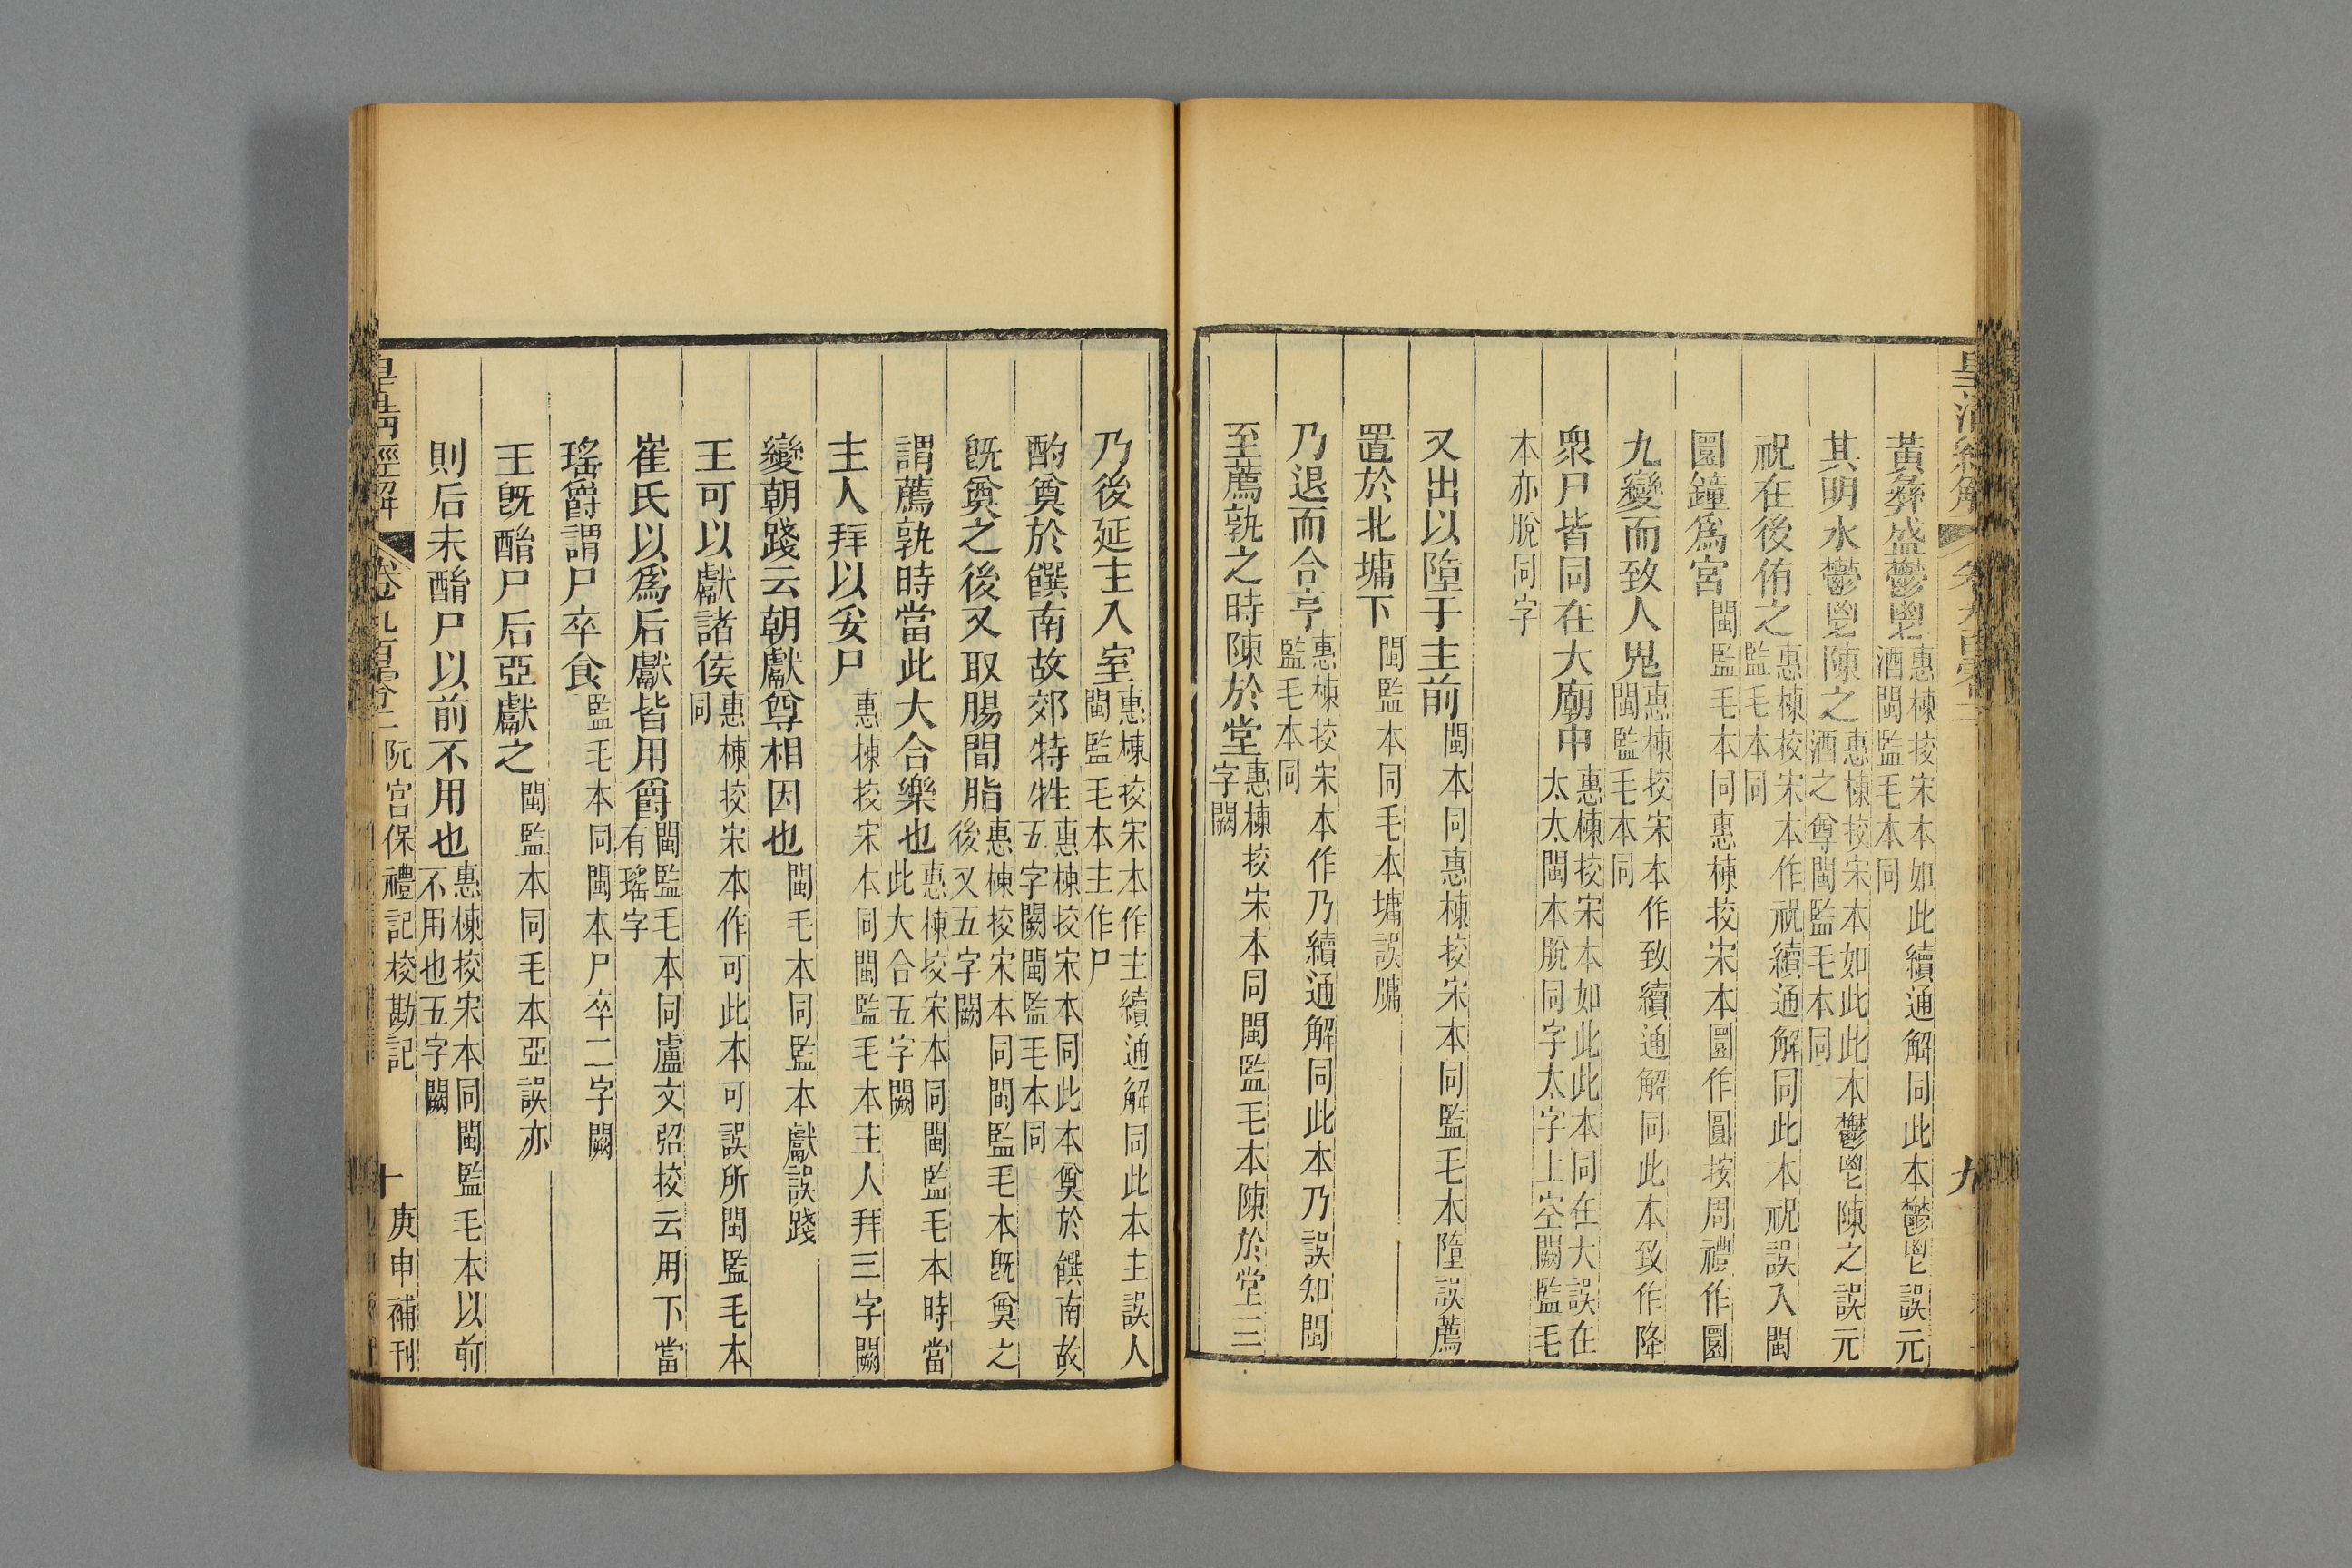 皇清經解
九
黃彝盛鬱鬯惠棟挍宋本如此續通解同此本鬱鬯誤元酒閩監毛本同
其明水鬱鬯陳之惠棟挍宋本如此此本鬱鬯陳之誤元酒之尊閩監毛本同
祝在後侑之惠棟校宋本作祝續通解同此本祝誤入閩監毛本同
圜鐘爲宮閩監毛本同惠棟挍宋本圜作圓按周禮作圜
九變而致人鬼惠棟挍宋本作致續通解同此本致作降閩監毛本同
衆尸皆同在大廟中惠棟挍宋本如此此本同在大誤在太太閩本脫同字太字上空闕監毛
本亦脫同字
又出以墮于主前閩本同惠棟挍宋本同監毛本墮誤薦
置於北墉下閩監本同毛本墉誤牗
乃退而合亨惠棟挍宋本作乃續通解同此本乃誤知閩監毛本同
至薦孰之時陳於堂惠棟挍宋本同閩監毛本陳於堂三字闕
乃後延主入室惠棟挍宋本作主續通解同此本主誤人閩監毛本主作尸
酌奠於饌南故郊特牲惠棟挍宋本同此本奠於饌南故五字闕閩監毛本同
旣奠之後又取腸間脂惠棟挍宋本同閩監毛本旣奠之後又五字闕
謂薦孰時當此大合樂也惠棟挍宋本同閩監毛本時當此大合五字闕
主人拜以妥尸惠棟挍宋本同閩監毛本主人拜三字闕
變朝踐云朝獻尊相因也閩毛本同監本獻誤踐
王可以獻諸侯惠棟挍宋本作可此本可誤所閩監毛本同
崔氏以爲后獻皆用爵閩監毛本同盧文弨挍云用下當有瑤字
瑤爵謂尸卒食監毛本同閩本尸卒二字闕
王旣酳尸后亞獻之閩監本同毛本亞誤亦
則后未酳尸以前不用也惠棟挍宋本同閩監毛本以前不用也五字闕
皇清經解
阮宮保禮記校勘記
十
庚申補刊